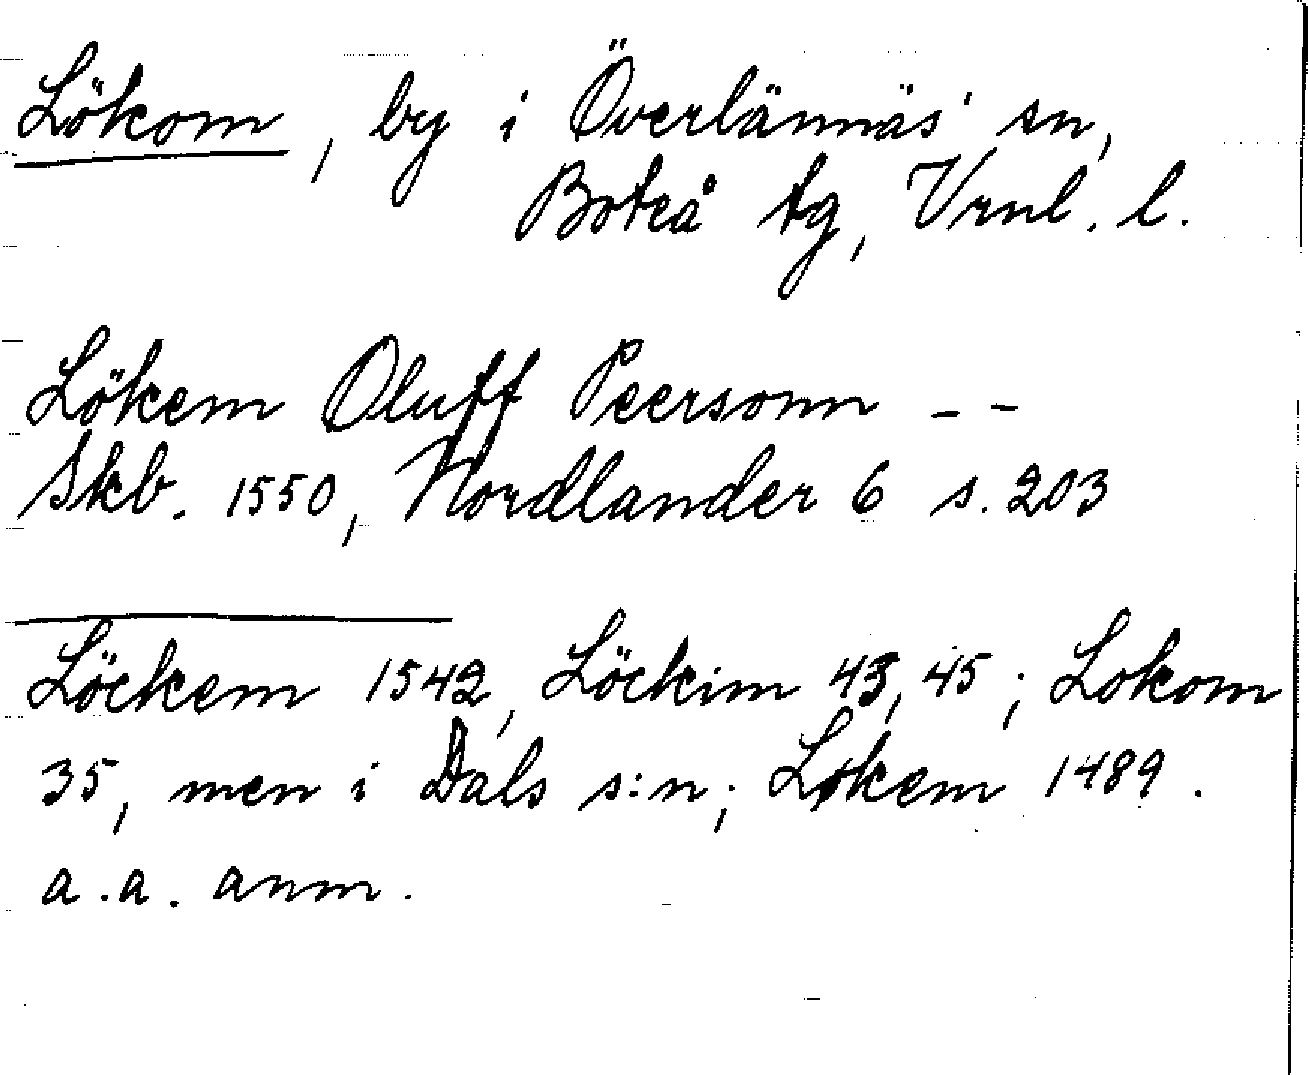 Lökom, by i Överlännäs' sn,
Boteå tg, Vrnl. l.
Lökem Oluff Peersonn – –
Skb. 1550, Nordlander 6 s. 203
Löckem 1542, Löckim 43, 45; Lokom
35, men i Dals s:n; Løkem 1489.
a.a. anm.